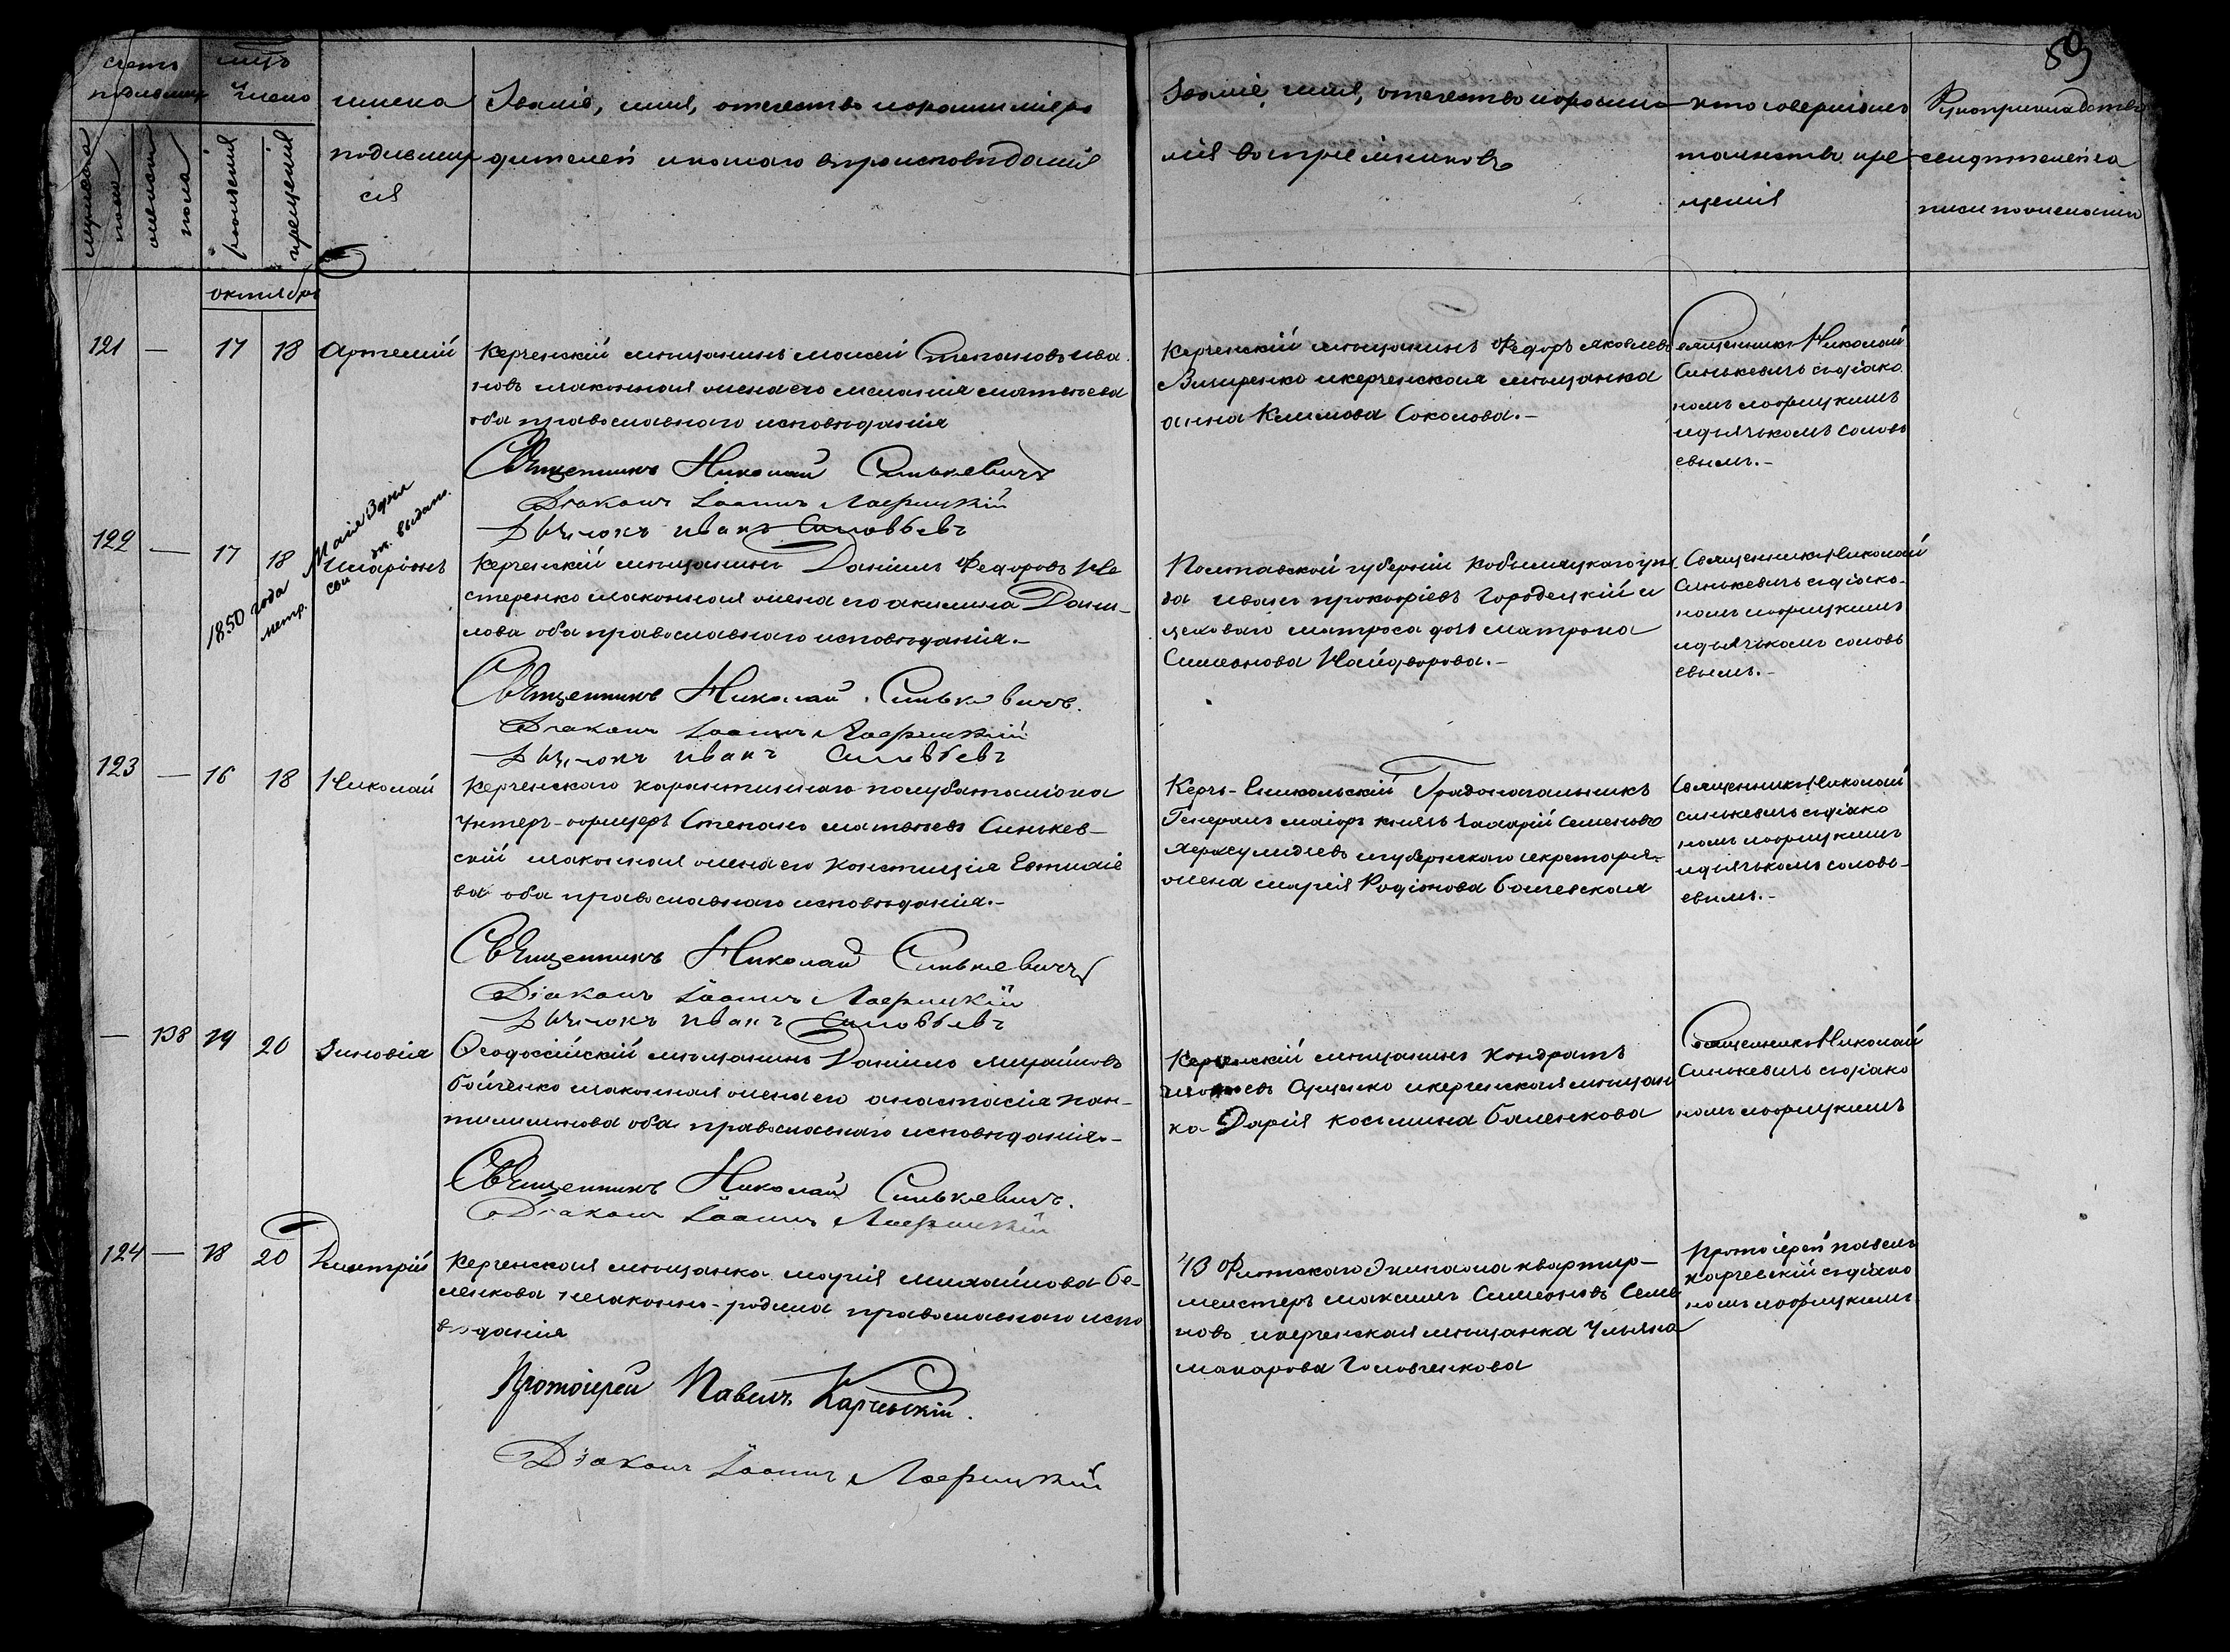 59
счетъ
родившихъ
мѣсяцъ
число
мужеска
пола
женска
пола
рожденія
крещенія
имена
родивших
ся
Званіе, имя, отечество и фамилія ро
дителей и какого вѣроисповѣданія
Званіе, имя, отечество и фами-
лія воспріемниковъ
кто совершалъ
таинство кре
щенія
Рукоприкладство
свидѣтелей за
писи по желанію
октября
121 — 17 18 Артемій
Керченскій мѣщанинъ Моисей Степановъ Ива
новъ и законная жена его Мелания Матвѣева
оба православнаго исповѣданія
Священникъ Николай Синькевичъ
Діаконъ Іоаннъ Лафицкій
Дьячокъ Иванъ Соловьевъ
Керченскій мѣщанинъ Федоръ Яковлевъ
и керченская мѣщанка
Анна Климова Соколова.—
Священникъ Николай
Синькевичъ съ діако
номъ Лофицкимъ
и дьячькомъ Соловь
евымъ.—
122 — 17 18 Иларіонъ
1850 года Маія 3 дня
метр. сви выдано.
Керченскій мѣщанинъ Даніилъ Федоровъ Не
стеренко и законная жена его Акилина Дани-
лова оба православнаго исповѣданія.—
Священникъ Николай Синькевичъ.
Діаконъ Іоаннъ Лафицкій
Дьячокъ Иванъ Соловьевъ
Полтавской губерніи Кобыляцкаго уѣз
да Иванъ Прокофіевъ Городецкій и
цеховаго матроса дочь Матрона
Симеонова Найдворова.—
Священникъ Николай
Синькевичъ съ діако-
номъ Лофицкимъ
и дьячькомъ Соловь
евымъ.—
123 — 16 18 Николай
Керченскаго карантиннаго полубаталіона
Унтеръ-офицеръ Степанъ Матвѣевъ Синькев-
скій и законная жена его Констанція Евтихіе
ва оба православнаго исповѣданія.—
Священникъ Николай Синькевичъ
Діаконъ Іоаннъ Лафицкій
Дьячокъ Иванъ Соловьевъ
Керчь-Еникольскій Градоначальникъ
Генералъ маіоръ князь Захарій Семеновъ
Херхеулидзевъ и губернскаго секретаря
жена Марія Родіонова
Священникъ Николай
Синькевичъ съ діако
номъ Лофицкимъ
и дьячькомъ Соловь-
евымъ.—
— 138 19 20 Зиновія
Ѳеодосійскій мѣщанинъ Даніило Михайловъ
Бойченко и законная жена его Анастасія Пан-
тилимонова оба православнаго исповѣданія.—
Священникъ Николай Синькевичъ.
Діаконъ Іоаннъ Лафицкій
Керченскій мѣщанинъ Кондратъ
Сущенко и керченская мѣщан
ка Дарія Косьмина Баленкова
Священникъ Николай
Синькевичъ съ діако
номъ Лофицкимъ
124 — 18 20 Димитрій
Керченская мѣщанка Марія Михайлова Бе-
ленкова незаконно-родила православнаго испо
вѣданія
Протоіерей Павелъ Карчевскій.
Діаконъ Іоаннъ Лафицкій
43 Флотскаго Экипажа квартир-
мейстеръ Максимъ Симеоновъ Семе
новъ и керченская мѣщанка Ульяна
Макарова Головченкова
Протоіерей Павелъ
Карчевскій съ діако
номъ Лофицкимъ